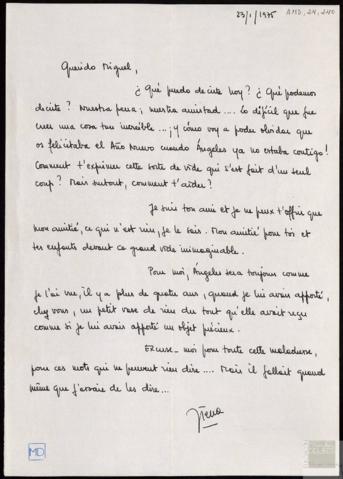 23/1/1975
AMD, 24, 240
Querido Miguel,
¿Qué puedo decirte hoy? ¿Qué podemos
decirte? Nuestra pena; nuestra amistad .... Lo difícil que fue
creer una cosa tan increíble ...; y cómo voy a poder olvidar que
os felicitaba el Año Nuevo cuando Ángeles ya no estaba contigo!
Comment t'exprimer cette sorte de vide qui s'est fait d'un seul
coup? Mais surtout, comment t'aider?
Je suis ton ami et je ne peux t'offrir que
mon amitié, ce qui n'est rien, je le sais. Mon amitié pour toi et
tes enfants devant ce grand vide inimaginable.
Pour moi, Ángeles sera toujours comme
je l'ai vue, il y a plus de quatre ans, quand je lui avais apporté,
chez vous, un petit vase de rien du tout qu'elle avait reçu
comme si je lui avais apporté un objet précieux.
Excuse-moi pour toute cette maladresse,
pour ces mots qui ne peuvent rien dire .... Mais il fallait quand
même que j'essaie de les dire...
MD